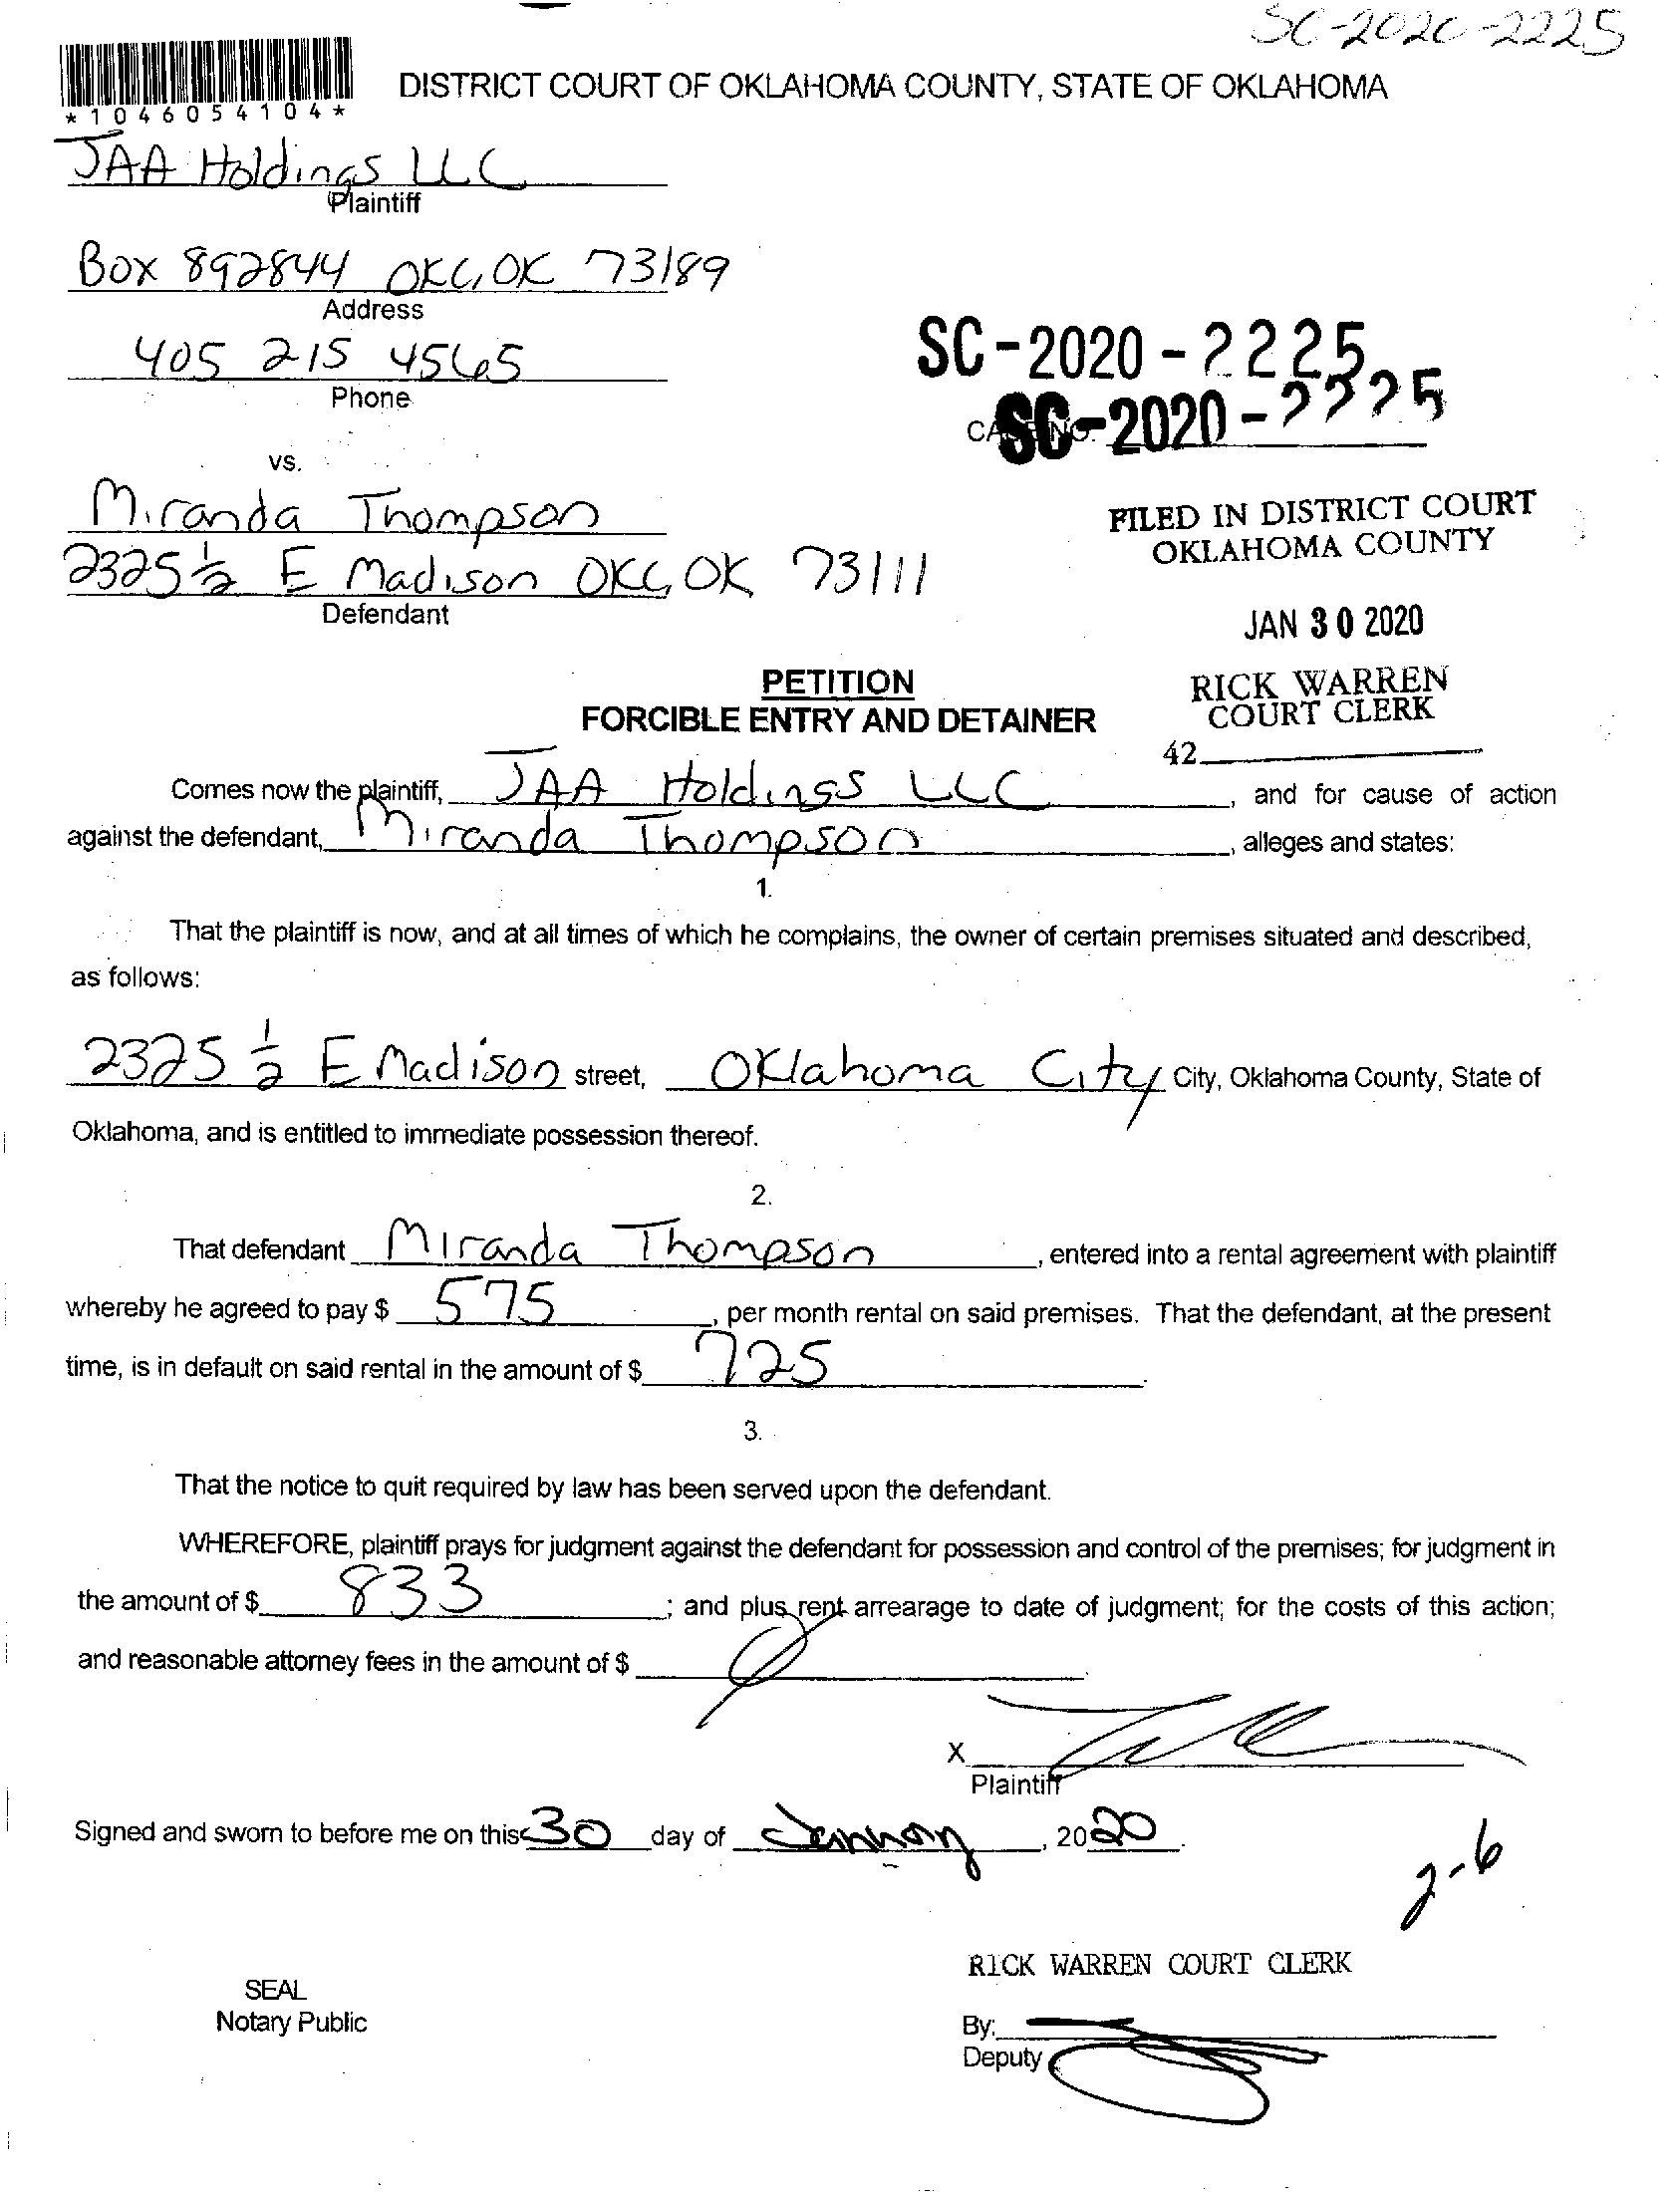 SC-2020-2225
*1046054104*
DISTRICT COURT OF OKLAHOMA COUNTY, STATE OF OKLAHOMA
JAA Holdings LLC
Plaintiff
Box 892844 OKC, OK 73189
Address
405 215 4565
Phone
SC-2020-2225
CASE NO. SC-2020-2225
vs.
Miranda Thompson
2325 1/2 E Madison OKC, OK 73111
Defendant
FILED IN DISTRICT COURT
OKLAHOMA COUNTY
JAN 30 2020
RICK WARREN
COURT CLERK
42
PETITION
FORCIBLE ENTRY AND DETAINER
Comes now the plaintiff, JAA Holdings LLC, and for cause of action
against the defendant, Miranda Thompson, alleges and states:
1.
That the plaintiff is now, and at all times of which he complains, the owner of certain premises situated and described,
as follows:
2325 1/2 E Madison street, Oklahoma City City, Oklahoma County, State of
Oklahoma, and is entitled to immediate possession thereof.
2.
That defendant Miranda Thompson, entered into a rental agreement with plaintiff
whereby he agreed to pay $ 575, per month rental on said premises. That the defendant, at the present
time, is in default on said rental in the amount of $ 725.
3.
That the notice to quit required by law has been served upon the defendant.
WHEREFORE, plaintiff prays for judgment against the defendant for possession and control of the premises; for judgment in
the amount of $ 833; and plus rent arrearage to date of judgment; for the costs of this action;
and reasonable attorney fees in the amount of $
X
Plaintiff
Signed and sworn to before me on this 30 day of January, 2020.
2-6
RICK WARREN COURT CLERK
SEAL
Notary Public
By:
Deputy